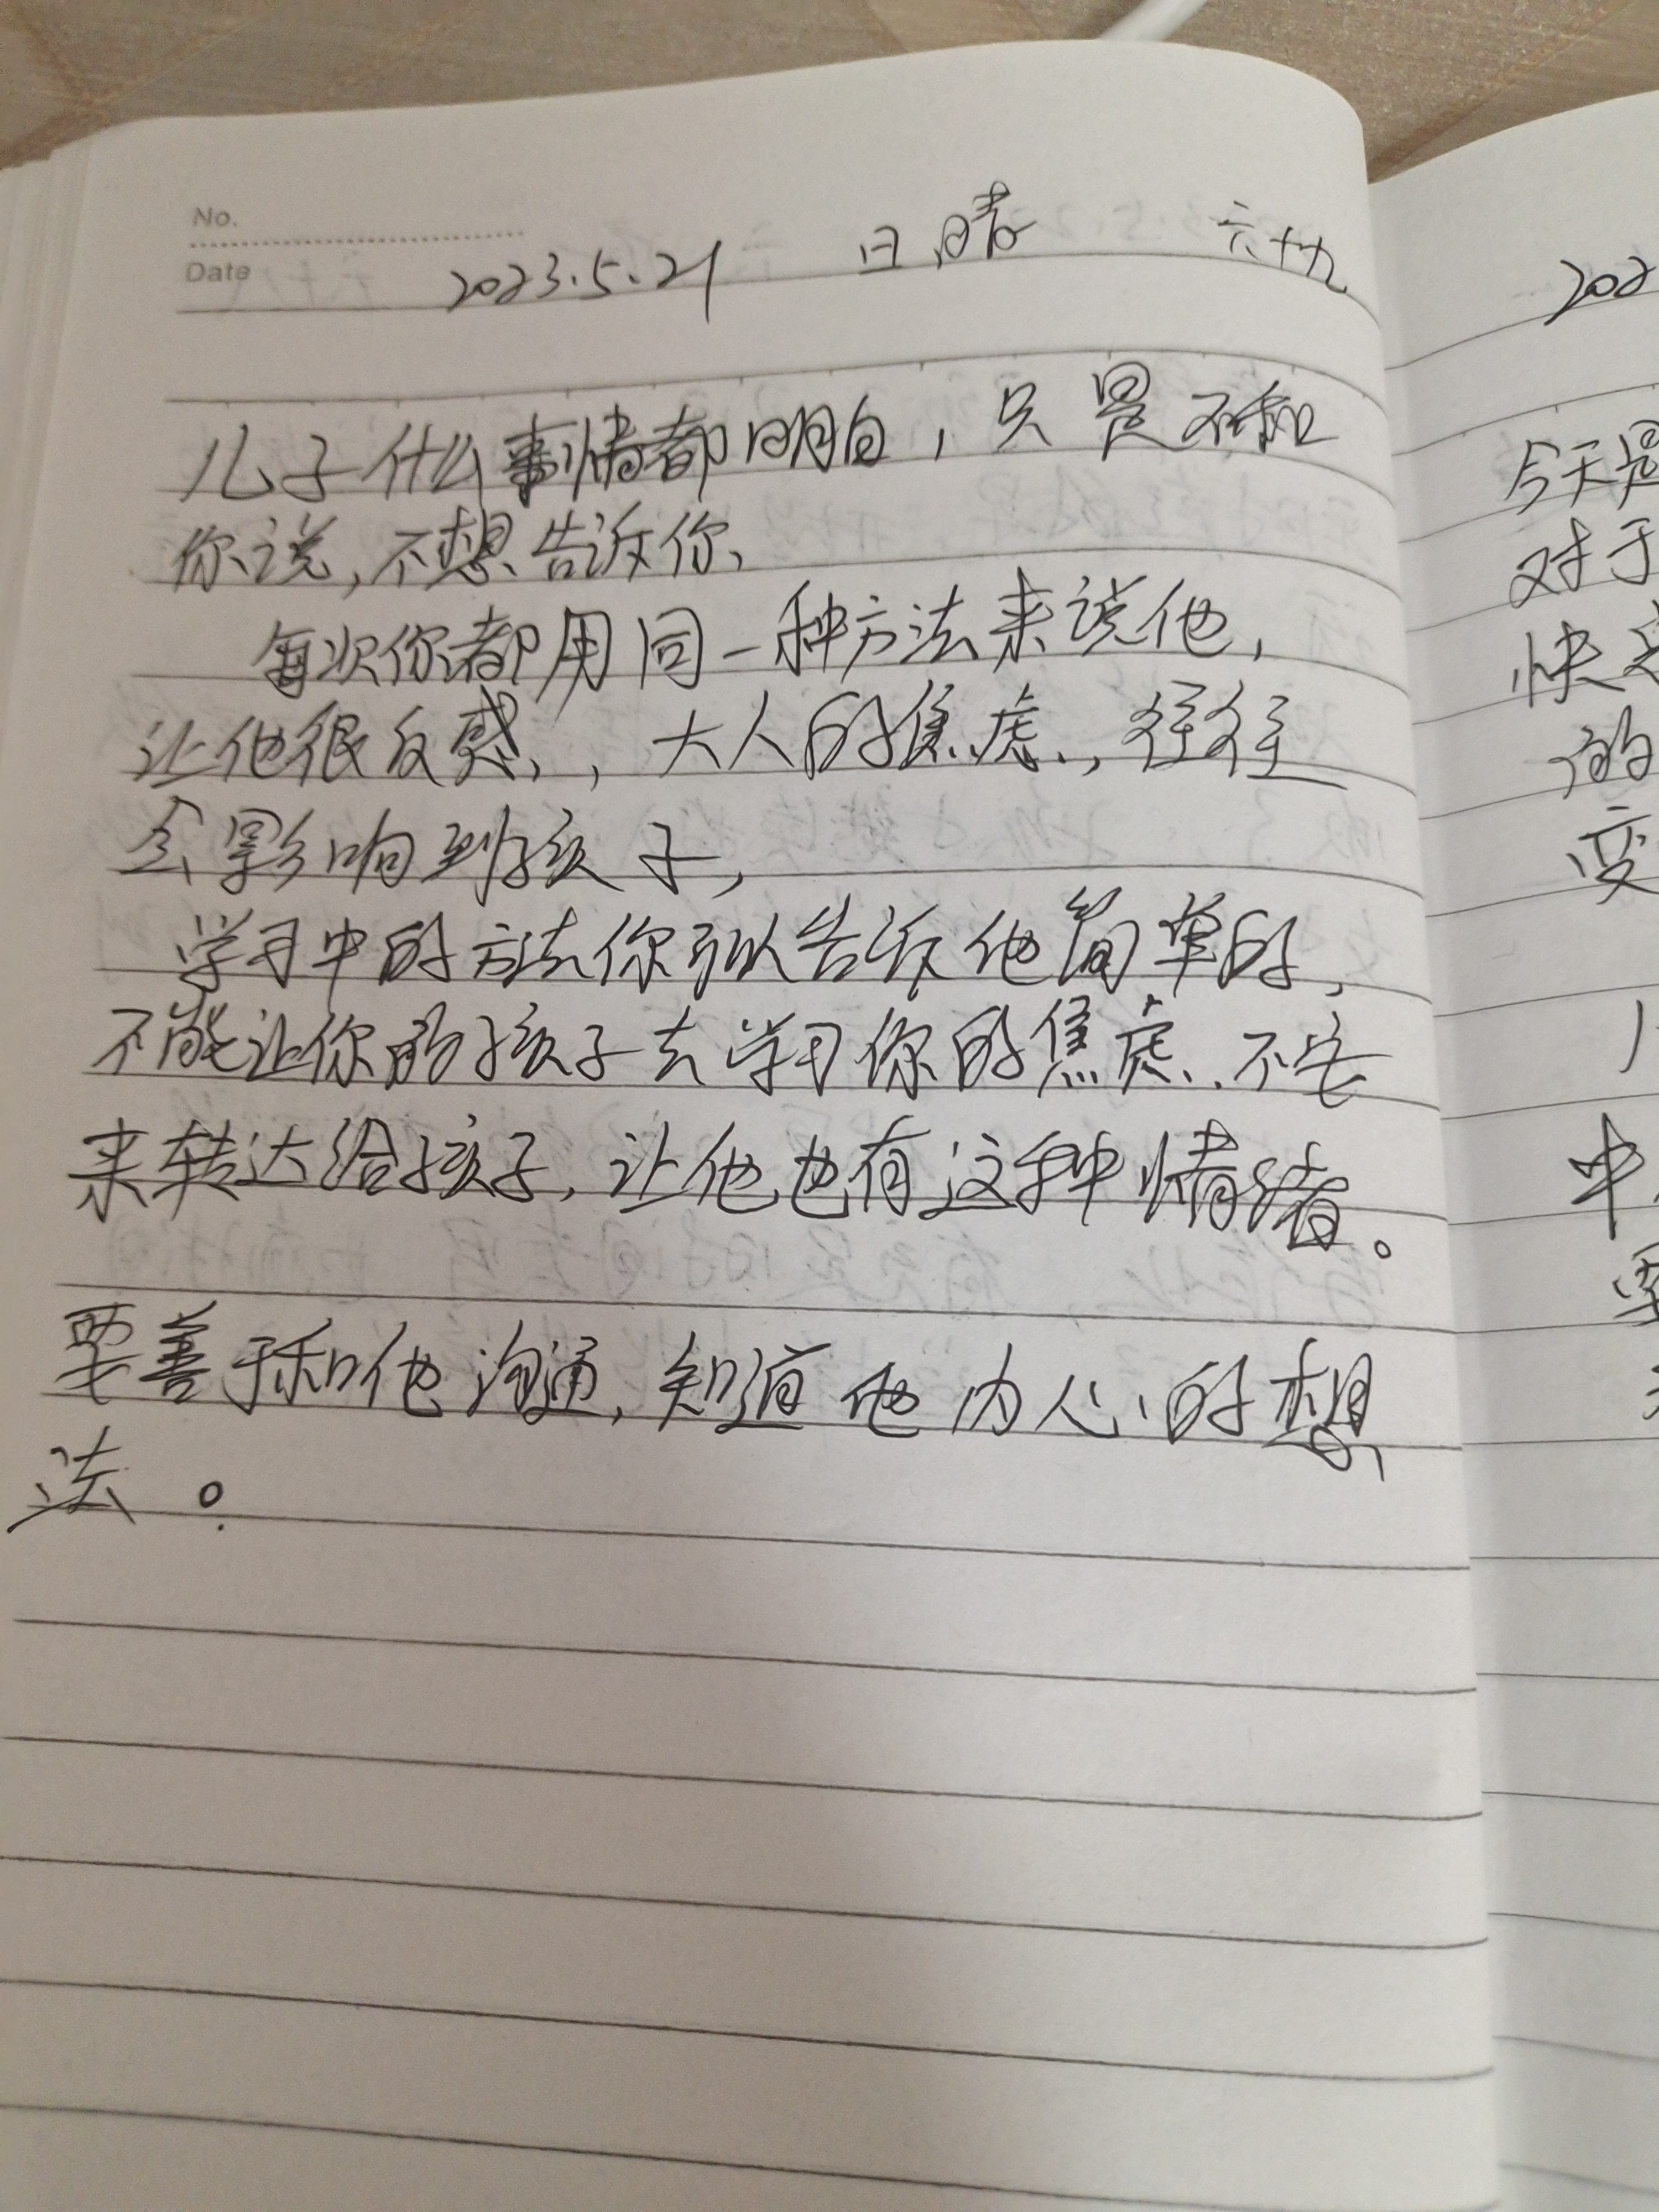 No.
Date 2023.5.21 日 晴 六十九
儿子什么事情都明白，只是不和
你说，不想告诉你、
每次你都用同一种方法来说他，
让他很反感，，大人的焦虑，往往
会影响到孩子，
学习中的方法你可以告诉他简单的，
不能让你的孩子去学习你的焦虑.不宅
来转达给孩子，让他也有这种情绪。
要善于和他沟通，知道他内心的想
法。
202
今天是
对于
快
的
变
中